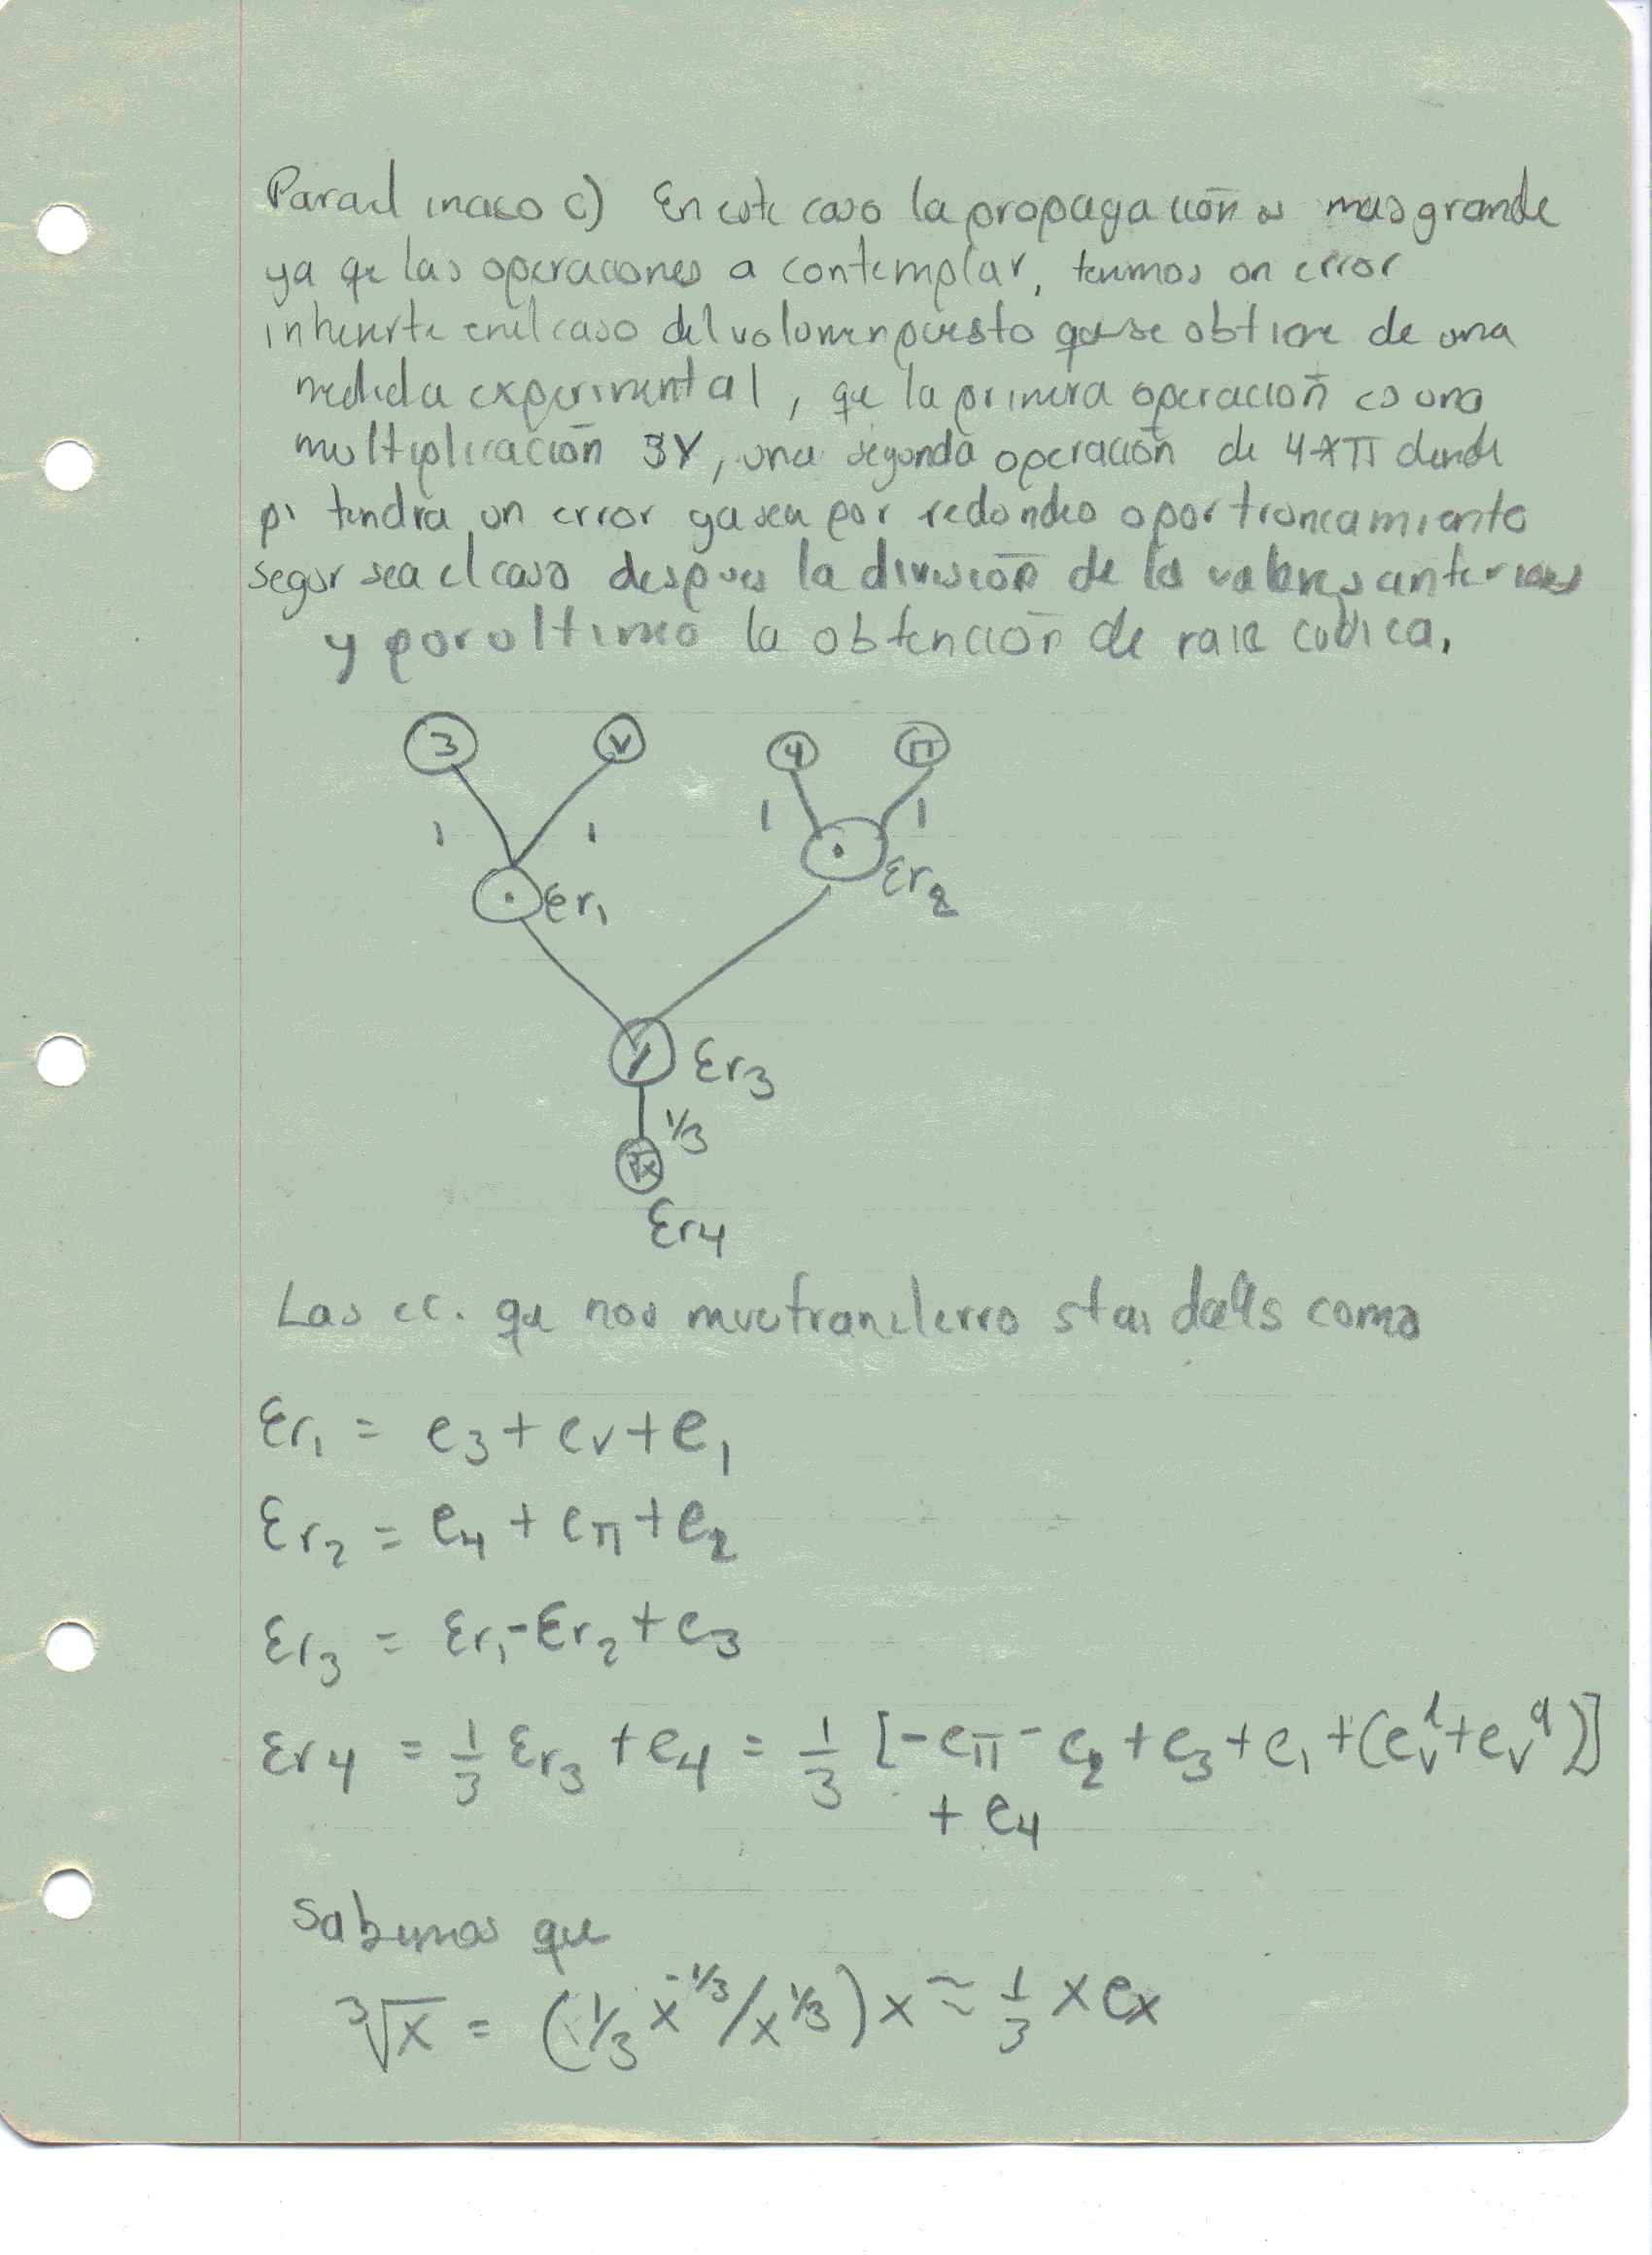 Para el inciso c) En este caso la propagación es mas grande
ya que las operaciones a contemplar, tenemos un error
inherente en el caso del volumen puesto que se obtiene de una
medida experimental, que la primera operación es una
multiplicación 3V, una segunda operación de 4*π donde
pi tendra un error ya sea por redondeo o por truncamiento
segun sea el caso despues la división de los valores anteriores
y por ultimo la obtención de raiz cubica.
3 V 4 π
1 1 1 1
· Er₁ · Er₂
/ Er₃
1/3
∛x
Er₄
Las ec. que nos muestran el error stan dadas como
Er₁ = e₃ + ev + e₁
Er₂ = e₄ + eπ + e₂
Er₃ = Er₁ - Er₂ + e₃
Er₄ = 1/3 Er₃ + e₄ = 1/3 [-eπ - e₂ + e₃ + e₁ + (e_v + e_v)]
+ e₄
Sabemos que
∛x = (1/3 x^-1/3 / x^1/3) x ≈ 1/3 x ex